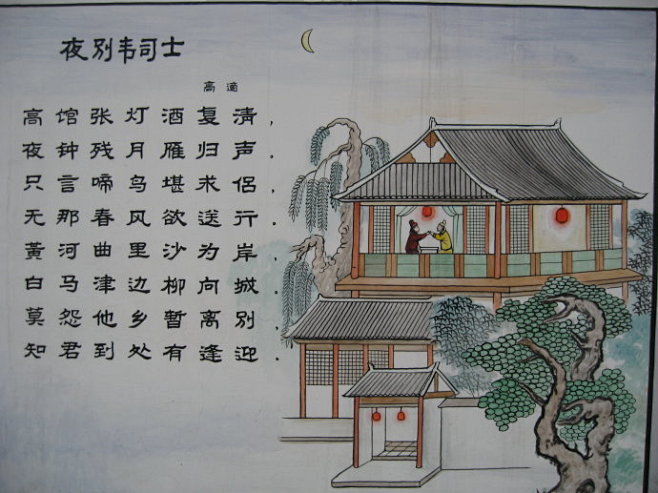 夜別韦司士
高適
高馆张灯酒复清，
夜钟残月雁归声．
只言啼鸟堪求侣，
无那春风欲送行．
黃河曲里沙为岸，
白马津边柳向城．
莫怨他乡暫离別，
知君到处有逢迎．